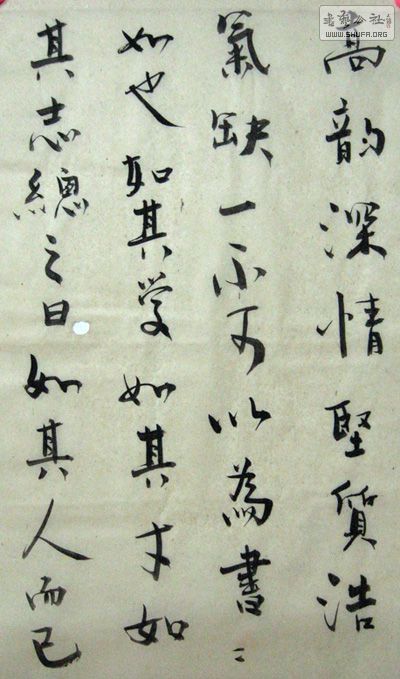 高韵深情坚質浩
氣缺一不可以為書〻
如也如其学如其才如
其志總之曰如其人而已
書法公社
WWW.SHUFA.ORG